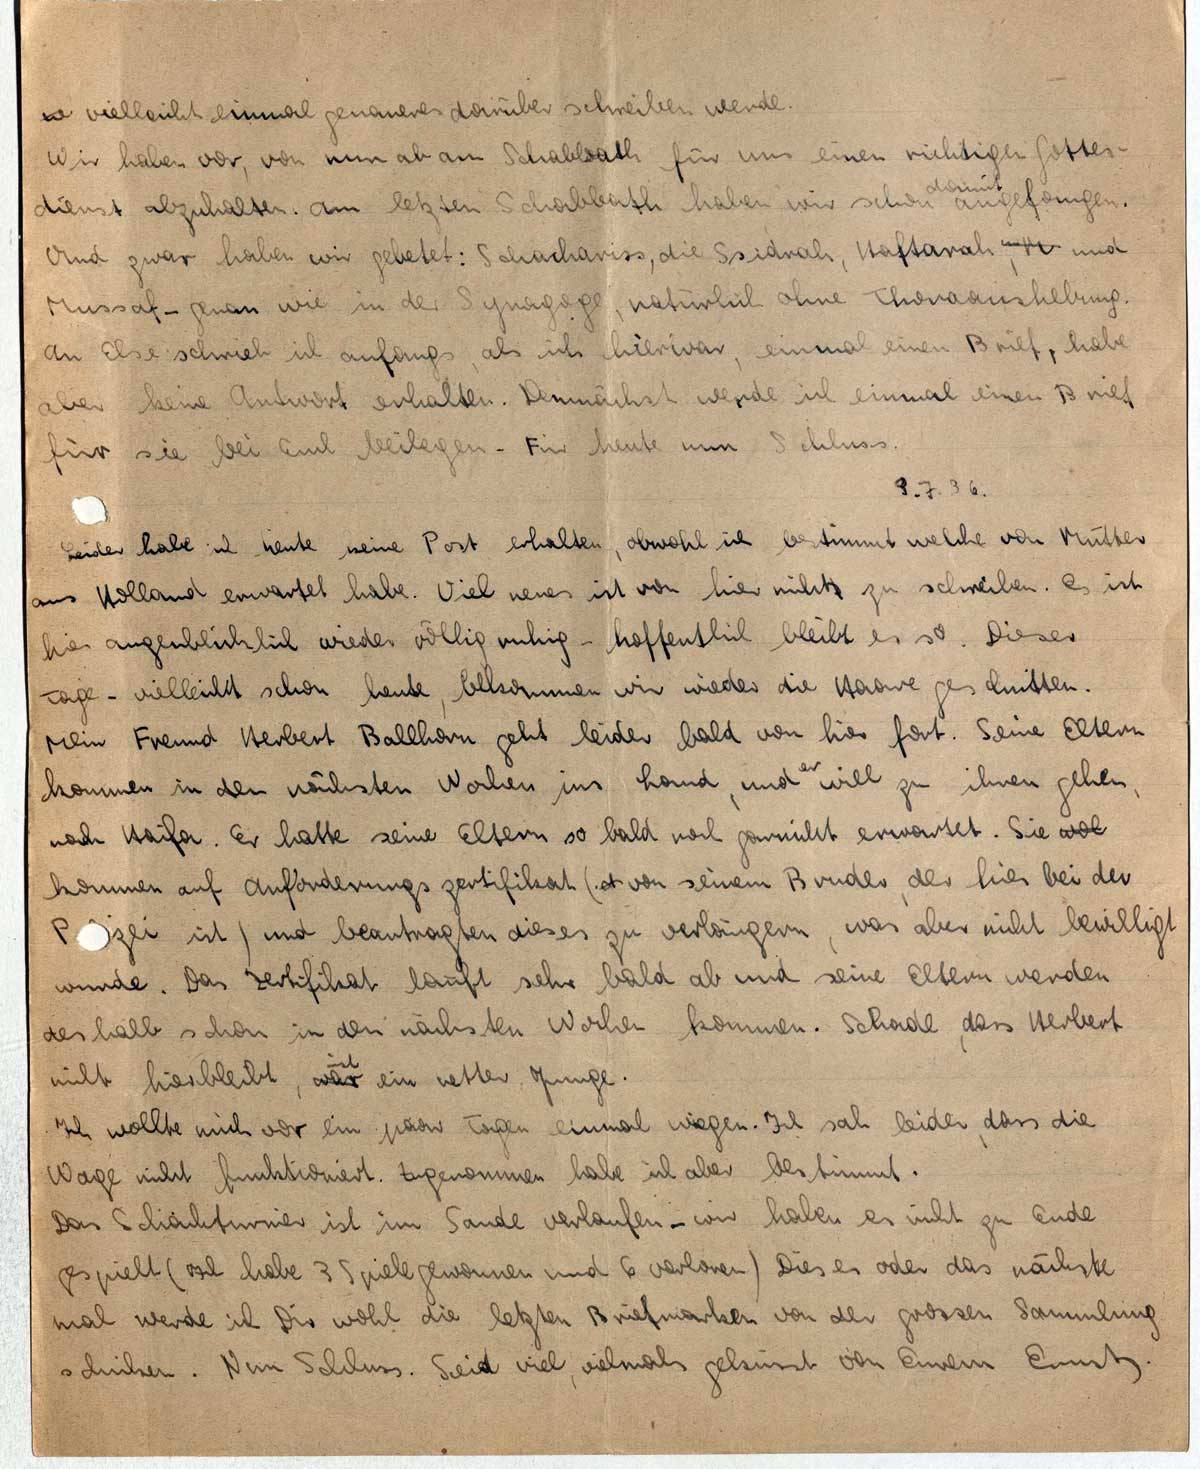 vielleicht einmal genaueres darüber schreiben werde.
Wir haben vor, von nun ab am Schabbath für uns einen richtigen Gottes-
dienst abzuhalten. Am letzten Schabbath haben wir schon damit angefangen.
Und zwar haben wir gebetet: Schachariss, die Ssidrah, Haftarah, und
Mussaf - genau wie in der Synagoge, natürlich ohne Thoraaushebung.
An Else schrieb ich anfangs, als ich hier war, einmal einen Brief, habe
aber keine Antwort erhalten. Demnächst werde ich einmal einen Brief
für sie bei Euch beilegen - Für heute nun Schluss.
9.7.36.
Leider habe ich heute keine Post erhalten, obwohl ich bestimmt welche von Mutter
aus Holland erwartet habe. Viel neues ist von hier nicht zu schreiben. Es ist
hier augenblicklich wieder völlig ruhig - hoffentlich bleibt es so. Dieser
Tage - vielleicht schon heute, bekommen wir wieder die Haare geschnitten.
Mein Freund Herbert Ballhorn geht leider bald von hier fort. Seine Eltern
kommen in den nächsten Wochen ins Land, und er will zu ihnen gehen,
nach Haifa. Er hatte seine Eltern so bald noch garnicht erwartet. Sie
kommen auf Anforderungszertifikat (von seinem Bruder, der hier bei der
Polizei ist) und beantragten dieses zu verlängern, was aber nicht bewilligt
wurde. Das Zertifikat läuft sehr bald ab und seine Eltern werden
deshalb schon in den nächsten Wochen kommen. Schade, dass Herbert
nicht hierbleibt, ist ein netter Junge.
Ich wollte mich vor ein paar Tagen einmal wiegen. Ich sah leider, dass die
Wage nicht funktioniert. Zugenommen habe ich aber bestimmt.
Das Schachturnier ist im Sande verlaufen - wir haben es nicht zu Ende
gespielt (Ich habe 3 Spiele gewonnen und 6 verloren) Dieses oder das nächste
mal werde ich Dir wohl die letzten Briefmarken von der grossen Sammlung
schicken. Nun Schluss. Seid viel, vielmals geküsst von Eurem Ernst.